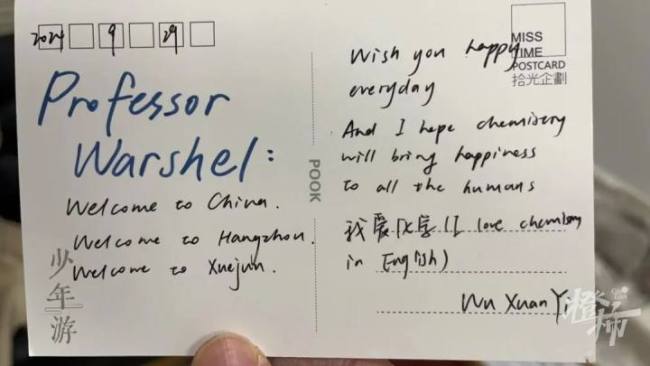 2024 9 29
Professor
Warshel:
Welcome to China.
Welcome to Hangzhou.
Welcome to Xuejun.
少年游
POOK
MISS
TIME
POSTCARD
拾光企劃
Wish you happy
everyday
And I hope chemistry
will bring happiness
to all the humans
我爱化学(I love chemistry
in English)
Wu Xuan Yi
橙柿